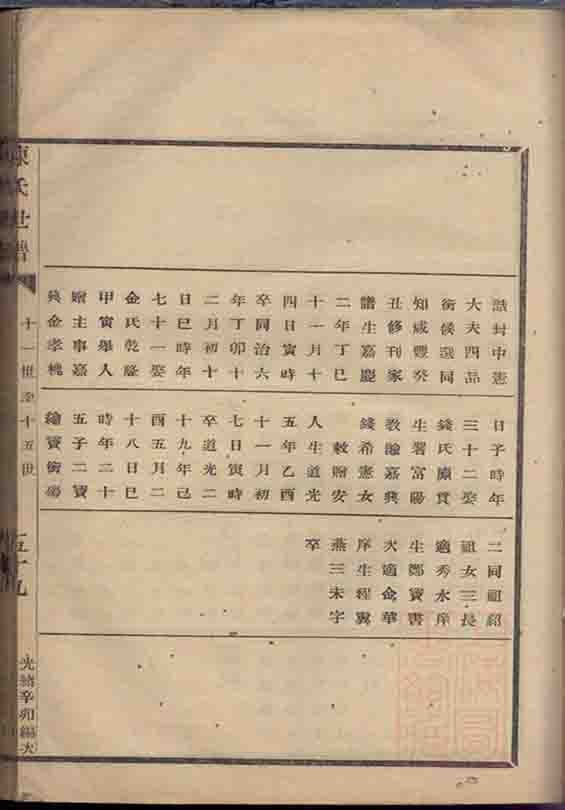 誥封中憲
大夫四品
銜候選同
知咸豐癸
丑修刊家
譜生嘉慶
二年丁巳
十一月十
四日寅時
卒同治六
年丁卯十
二月初十
日巳時年
七十一娶
金氏乾隆
甲寅舉人
贈主事嘉
興金孝槐
日子時年
三十二娶
錢氏廩貢
生署富陽
教諭嘉興
錢希憲女
敕贈安
人生道光
五年乙酉
十一月初
七日寅時
卒道光二
十九年己
酉五月二
十八日巳
時年二十
五子二寶
繪寶衡
二同祖紹
祖女三長
適秀水庠
生鄭寶書
次適金華
庠生程翼
燕三未字
卒
陳氏世譜
十一世至十五世
五十九
光緒辛卯編次